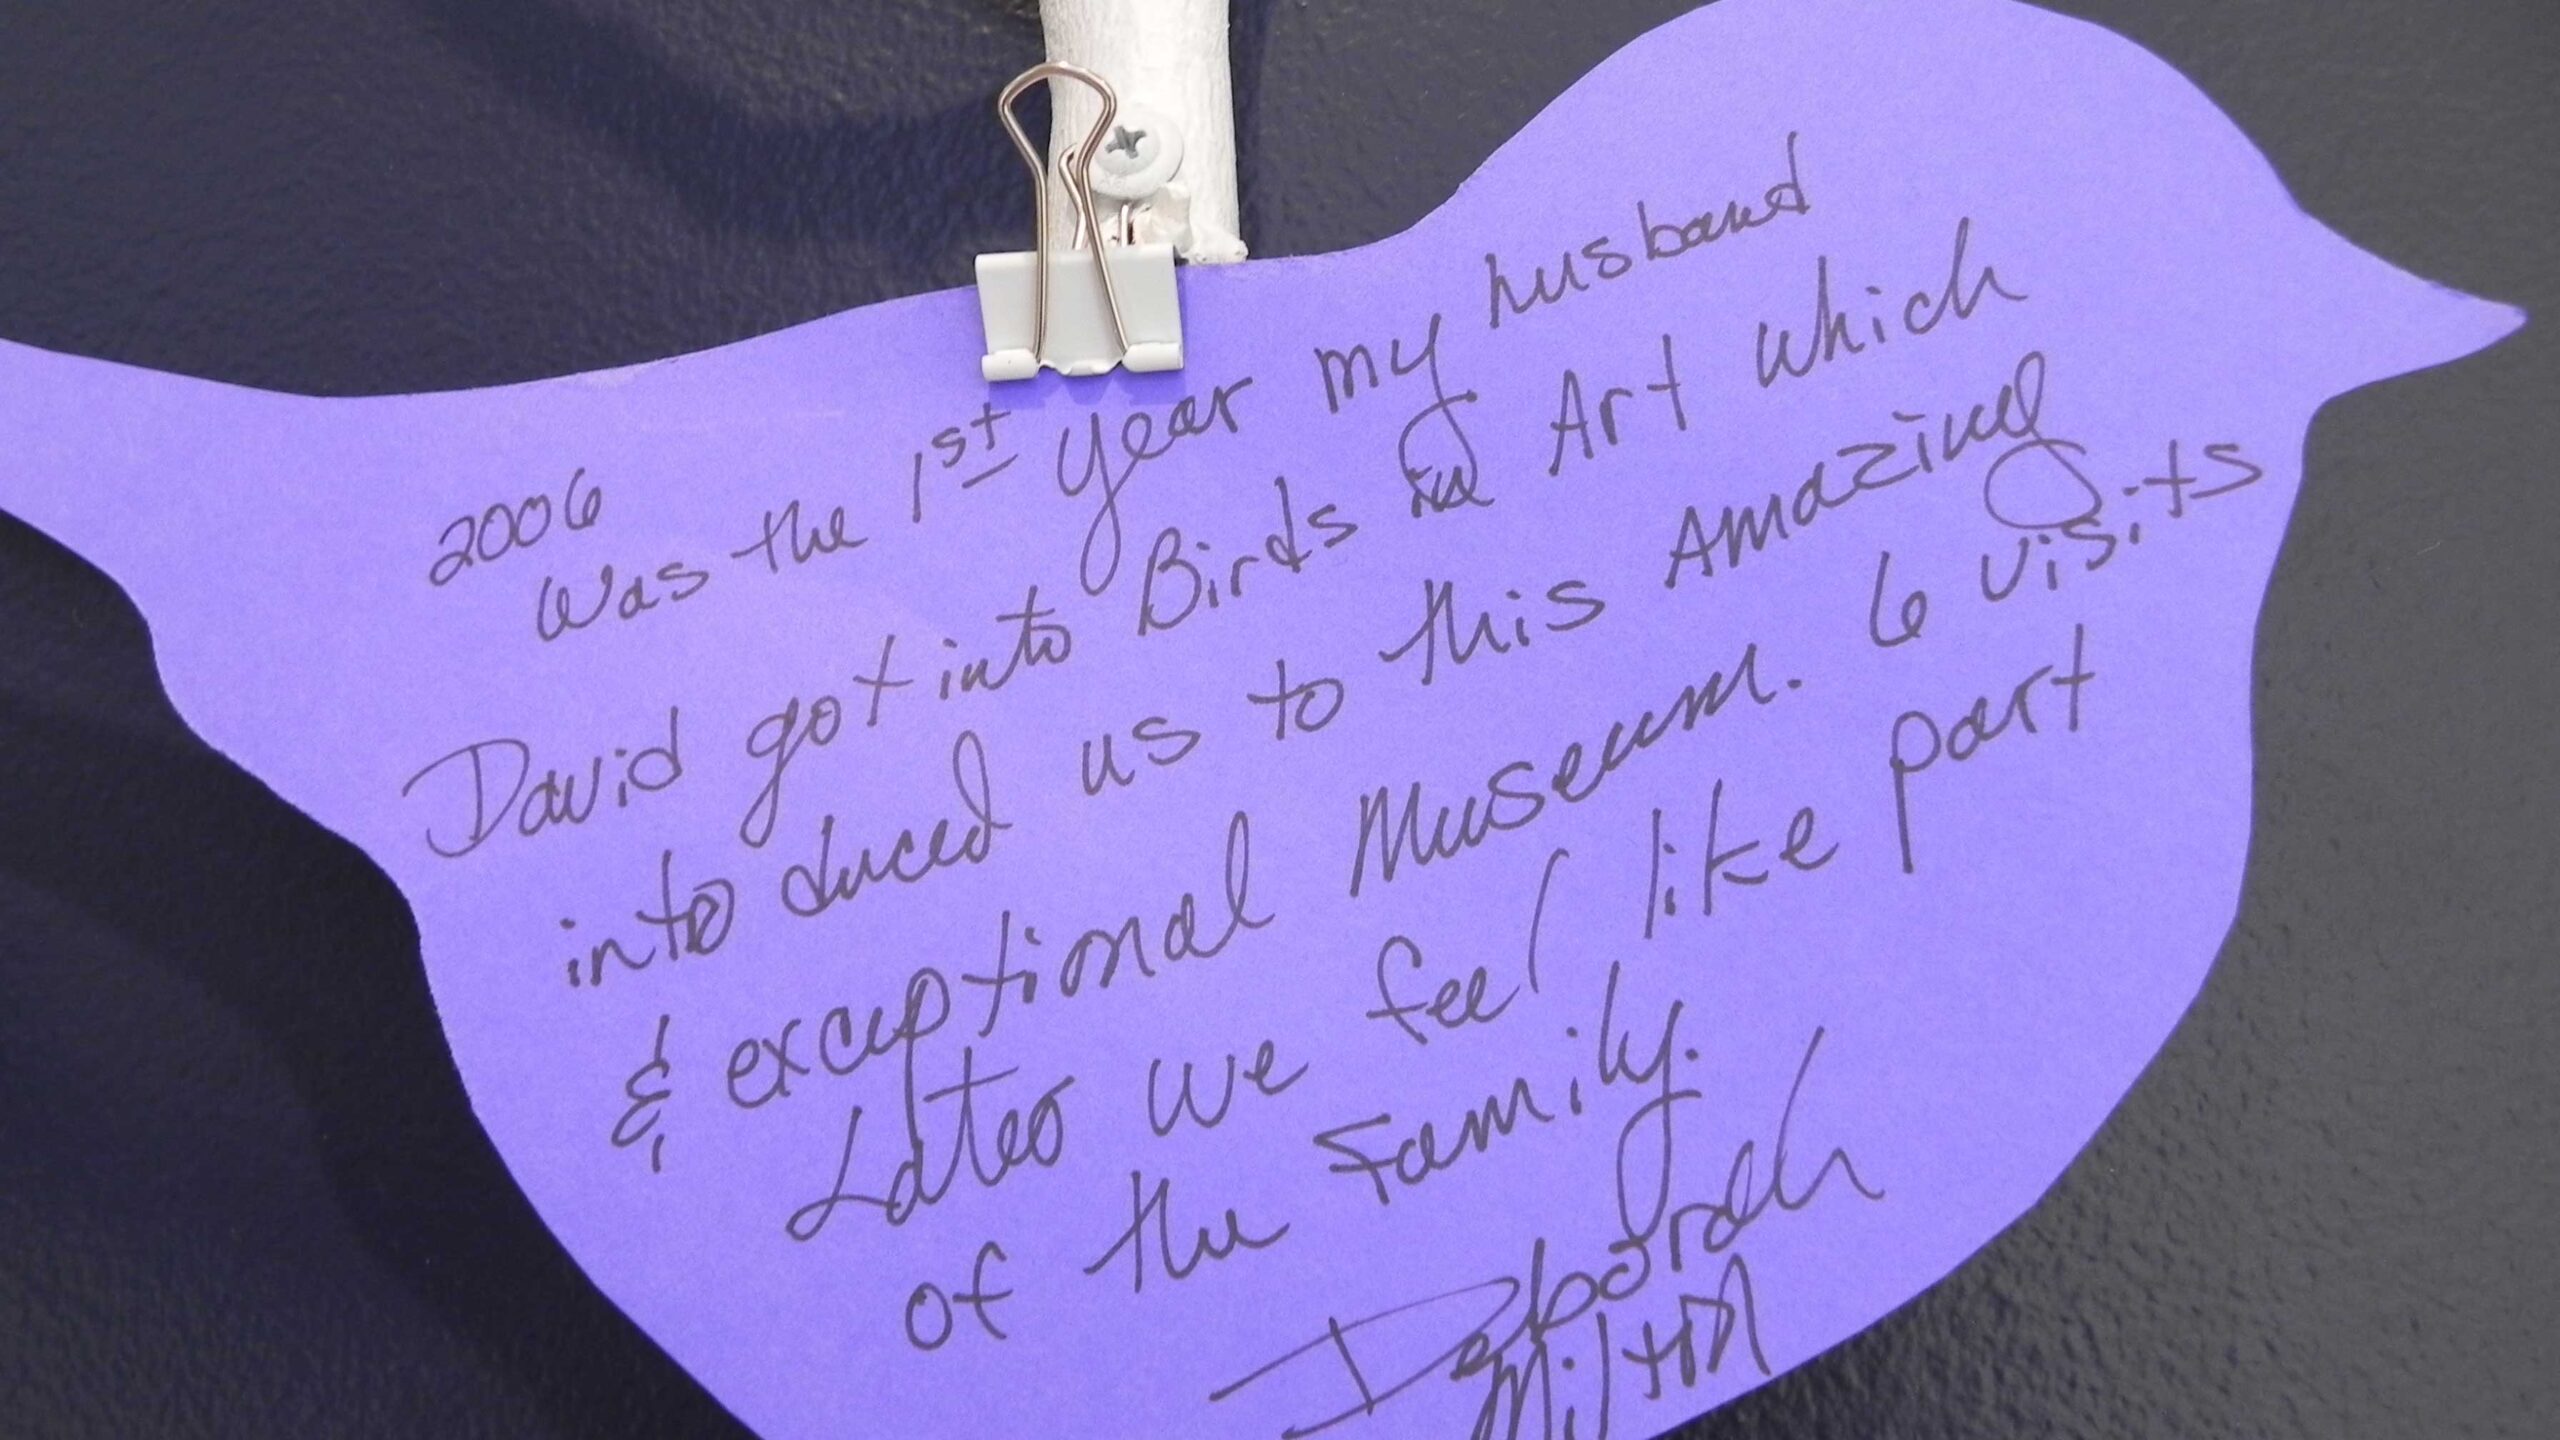 2006
Was the 1st year my husband
David got into Birds in Art which
into duced us to this Amazing
& exceptional Museum. 6 visits
Later we feel like part
of the Family.
Deborah
Milton